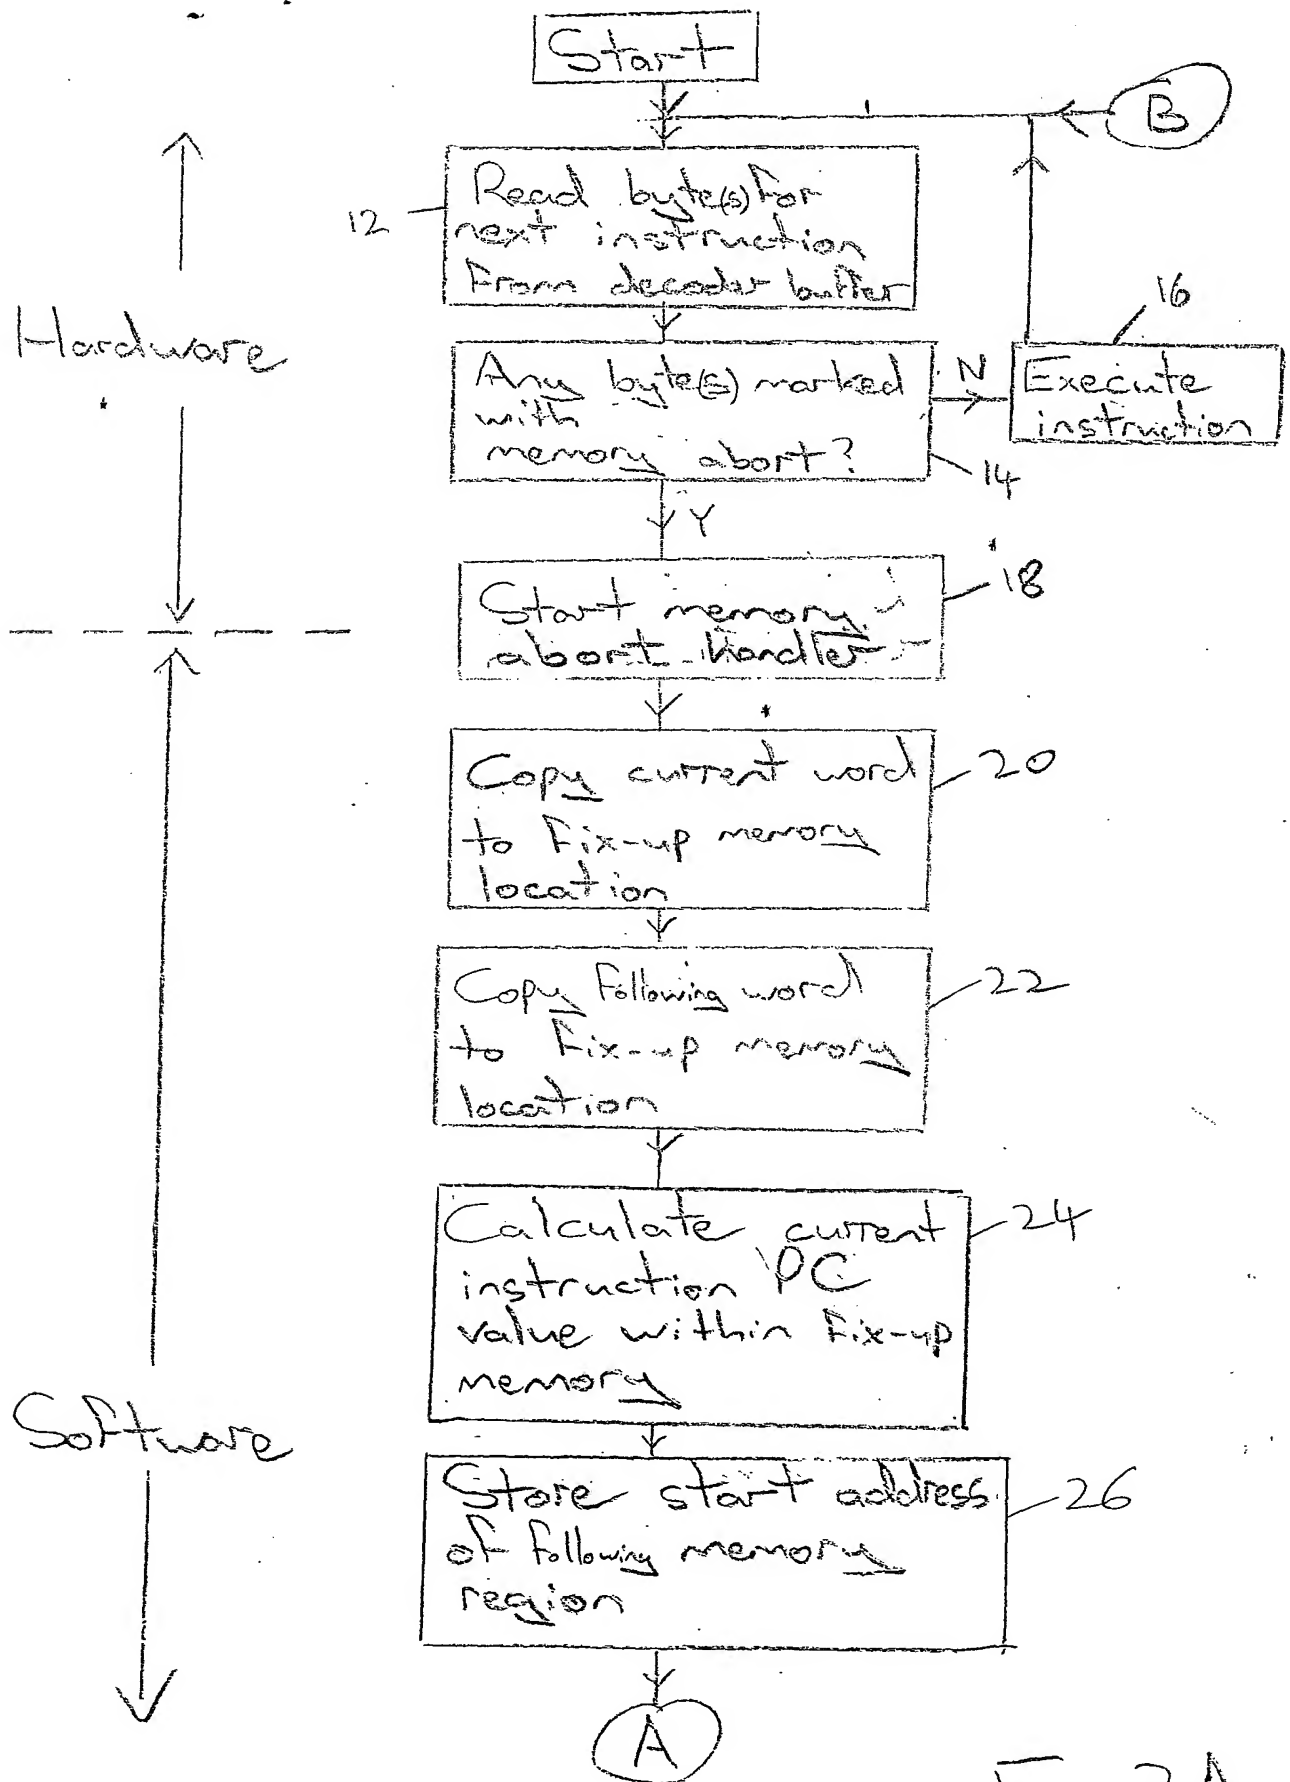 Start
B
12
Read byte(s) for
next instruction
from decoder buffer
16
Hardware
Any byte(s) marked
with
memory abort?
N
Execute
instruction
14
Y
Start memory
abort handler
18
Copy current word
to fix-up memory
location
20
Copy following word
to fix-up memory
location
22
Calculate current
instruction PC
value within fix-up
memory
24
Software
Store start address
of following memory
region
26
A